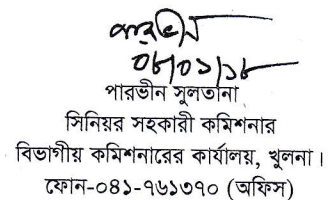 পারভীন
০৪/০১/১৮
পারভীন সুলতানা
সিনিয়র সহকারী কমিশনার
বিভাগীয় কমিশনারের কার্যালয়, খুলনা।
ফোন-০৪১-৭৬১৩৭০ (অফিস)